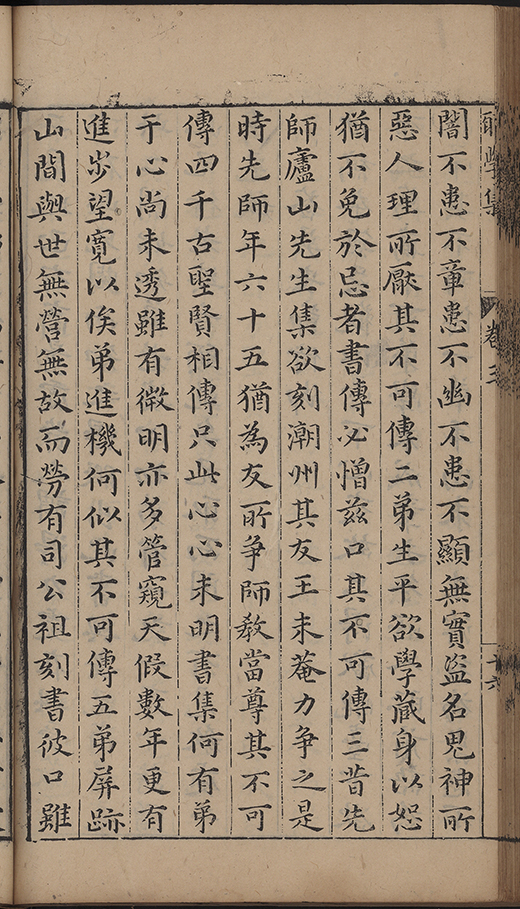 學集
卷三
十六
闇不患不章患不幽不患不顯無實盜名鬼神㪽
惡人理㪽厭其不可傳二弟生平欲學藏身以恕
猶不免於忌者書傳必憎兹口其不可傳三昔先
師廬山先生集欲刻潮州其友王未菴力争之是
時先師年六十五猶為友㪽争師教當尊其不可
傳四千古聖賢相傳只此心心未明書集何有弟
于心尚未透雖有微明亦多管窺天假數年更有
進步望寬以俟弟進機何似其不可傳五弟屏跡
山間與世無營無故而勞有司公祖刻書彼口雖